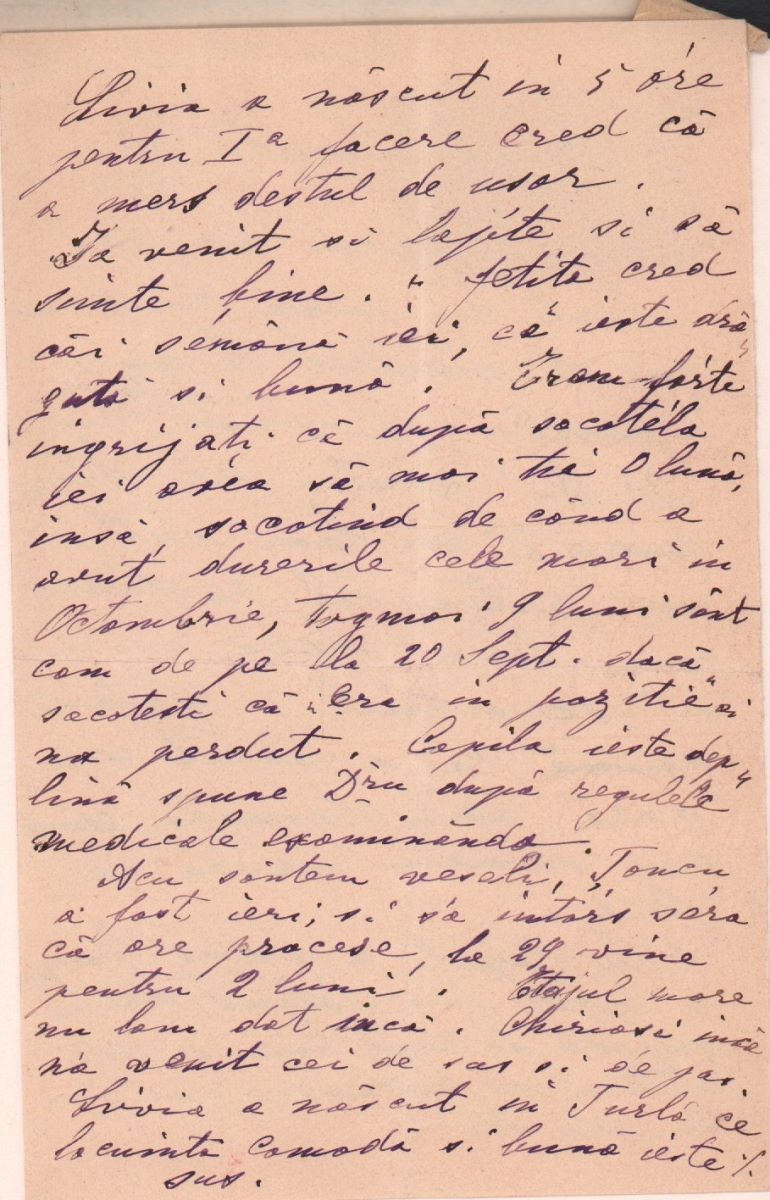 Livia a născut in 5 óre
pentru Iª facere cred că
a mers destul de usor.
Ia venit si lapte si să
simte bine. fetita cred
căi sémănă iei, că ieste dră
gutá si bună. Eram fórte
ingrijati că după socotéla
iei avéa să mai tiă o lună,
insă, socotind de cănd a
avut durerile cele mari in
Octombrie, Togmai 9 luni sănt
cam de pe la 20 Sept. dacă
socotesti că era in pozitie si
na perdut. Copila ieste dep
lină spune Dru după regulele
medicale examinăndo.
Acu săntem veseli, Ioncu
a fost ieri; si s'a intors séra
că are procese, la 29 vine
pentru 2 luni. Etajul mare
nu lam dat incă. Chiriasi incă
n'a venit cei de sus si de jos.
Livia a născut in Turlă ce
locuinta comodă si bună ieste %
sus.